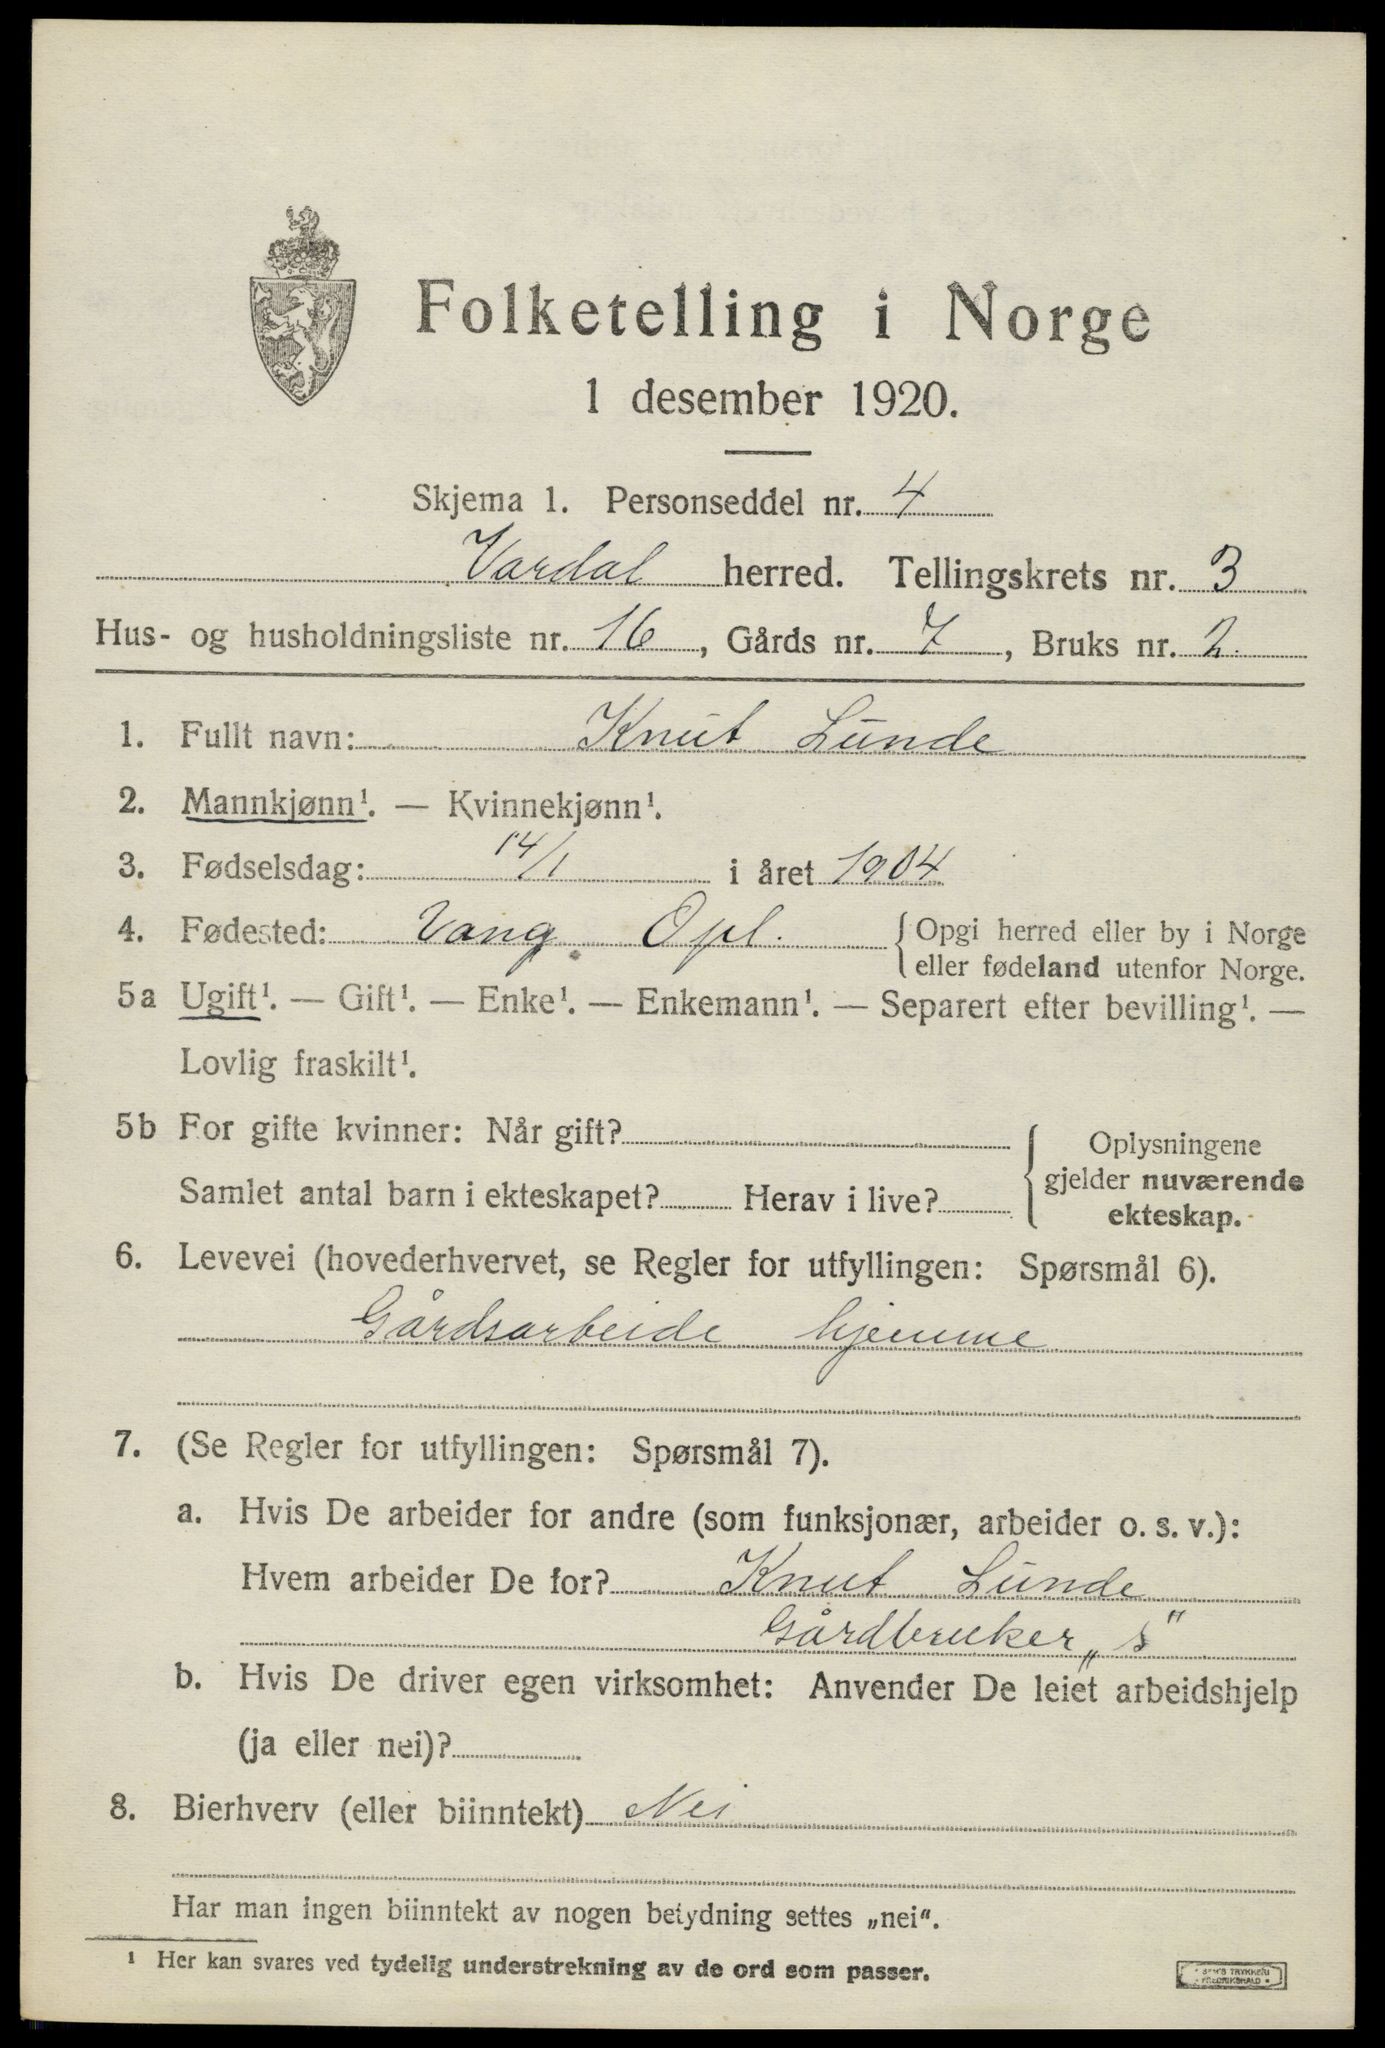 Folketelling i Norge
1 desember 1920.
Skjema 1. Personseddel nr. 4
Vardal herred. Tellingskrets nr. 3
Hus- og husholdningsliste nr. 16, Gårds nr. 7, Bruks nr. 2.
1. Fullt navn: Knut Lunde
2. Mannkjønn¹. — Kvinnekjønn¹.
3. Fødselsdag: 14/1 i året 1904
4. Fødested: Vang. Opl. { Opgi herred eller by i Norge
eller fødeland utenfor Norge.
5a Ugift¹. — Gift¹. — Enke¹. — Enkemann¹. — Separert efter bevilling¹. —
Lovlig fraskilt¹.
5b For gifte kvinner: Når gift?
Samlet antal barn i ekteskapet? Herav i live?
Oplysningene
gjelder nuværende
ekteskap.
6. Levevei (hovederhvervet, se Regler for utfyllingen: Spørsmål 6).
Gårdsarbeide hjemme
7. (Se Regler for utfyllingen: Spørsmål 7).
a. Hvis De arbeider for andre (som funksjonær, arbeider o. s. v.):
Hvem arbeider De for? Knut Lunde
Gårdbruker „s"
b. Hvis De driver egen virksomhet: Anvender De leiet arbeidshjelp
(ja eller nei)?
8. Bierhverv (eller biinntekt) Nei
Har man ingen biinntekt av nogen betydning settes „nei“.
¹ Her kan svares ved tydelig understrekning av de ord som passer.
TRYKKERI
FREDRIKSHALD